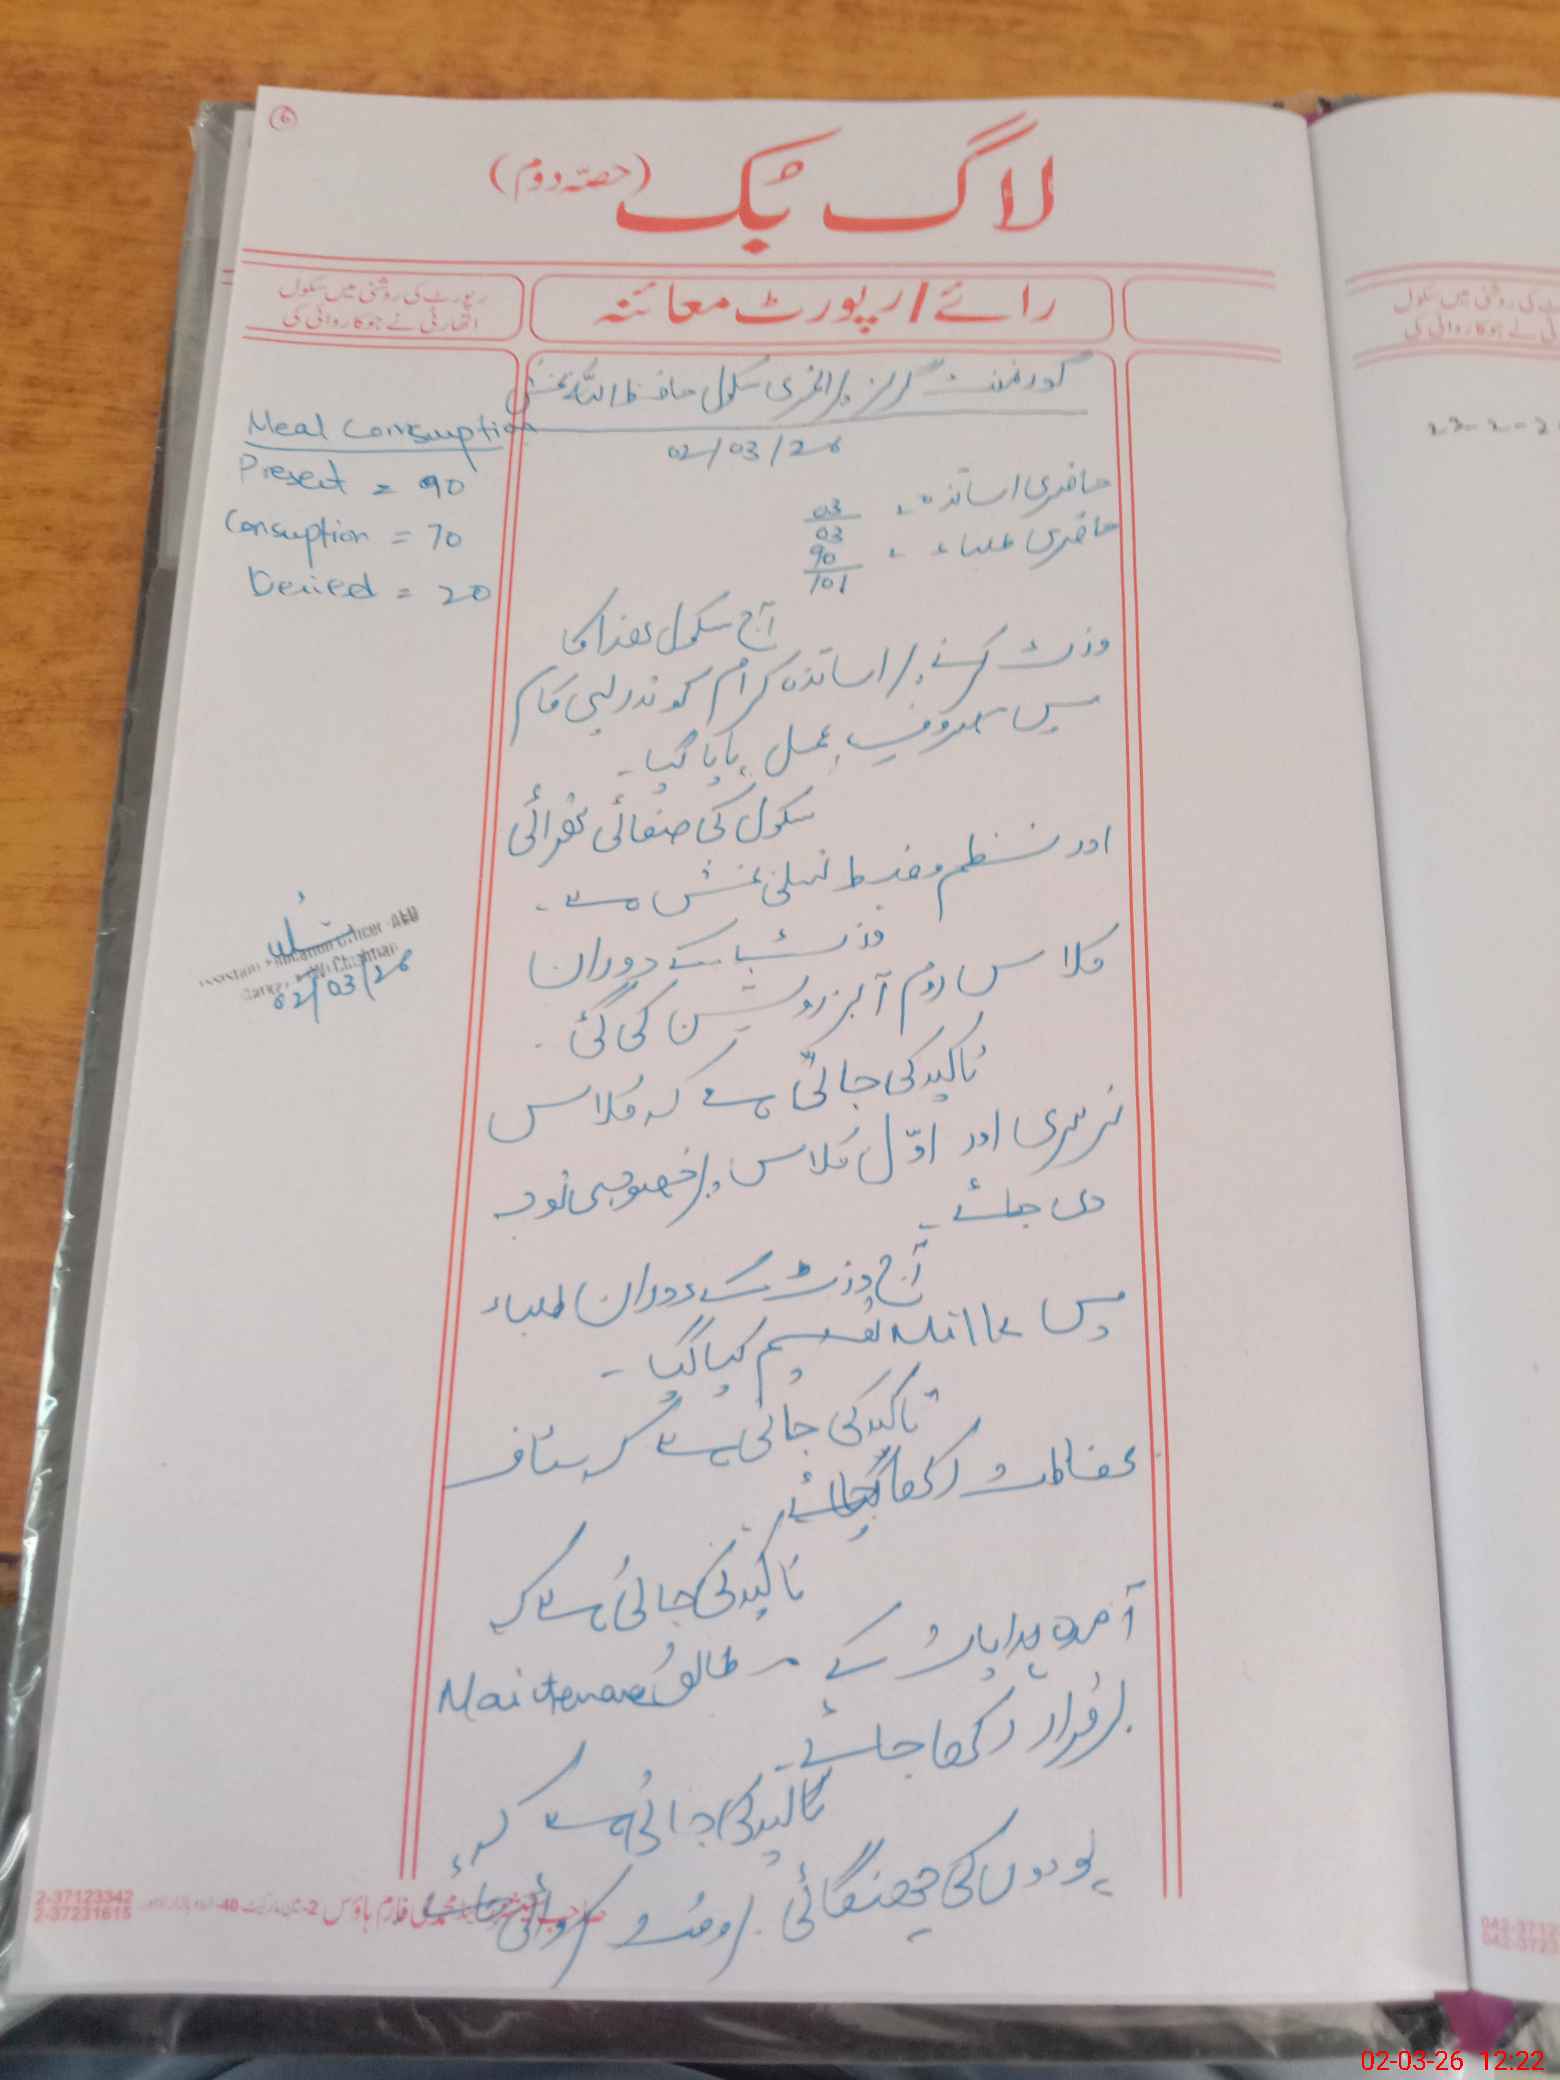 6
لاگ بُک (حصّہ دوم)
رائے/رپورٹ معائنہ
رپورٹ کی روشنی میں سکول
اتھارٹی نے جو کاروائی کی
گورنمنٹ گرلز پرائمری سکول حافظ اللہ بخش
02/03/26
حاضری اساتذہ = 03/03
حاضری طلباء = 90/101
آج سکول ھذا کا
وزٹ کرنے پر اساتذہ کرام کو تدریسی کام
میں مصروف عمل پایا گیا۔
سکول کی صفائی ستھرائی
اور نظم و ضبط تسلی بخش ہے۔
وزٹ کے دوران
کلاس روم آبزرویشن کی گئی۔
تاکید کی جاتی ہے کہ کلاس
نرسری اور اوّل کلاس پر خصوصی توجہ
دی جائے۔
آج وزٹ کے دوران طلباء
میں تقسیم کیا گیا۔
تاکید کی جاتی ہے کہ
رکھا جائے
تاکید کی جاتی ہے کہ
آمدہ ہدایات کے مطابق Maintenance
برقرار رکھا جائے۔
تاکید کی جاتی ہے کہ
پودوں کی چھنگائی بروقت کروائی جائے
Meal Consumption
Present = 90
Consuption = 70
Denied = 20
Assistant Education Officer AEO
02/03/26
2-37123342
2-37231615
رپورٹ کی روشنی میں سکول
23-2-2
02-03-26 12:22